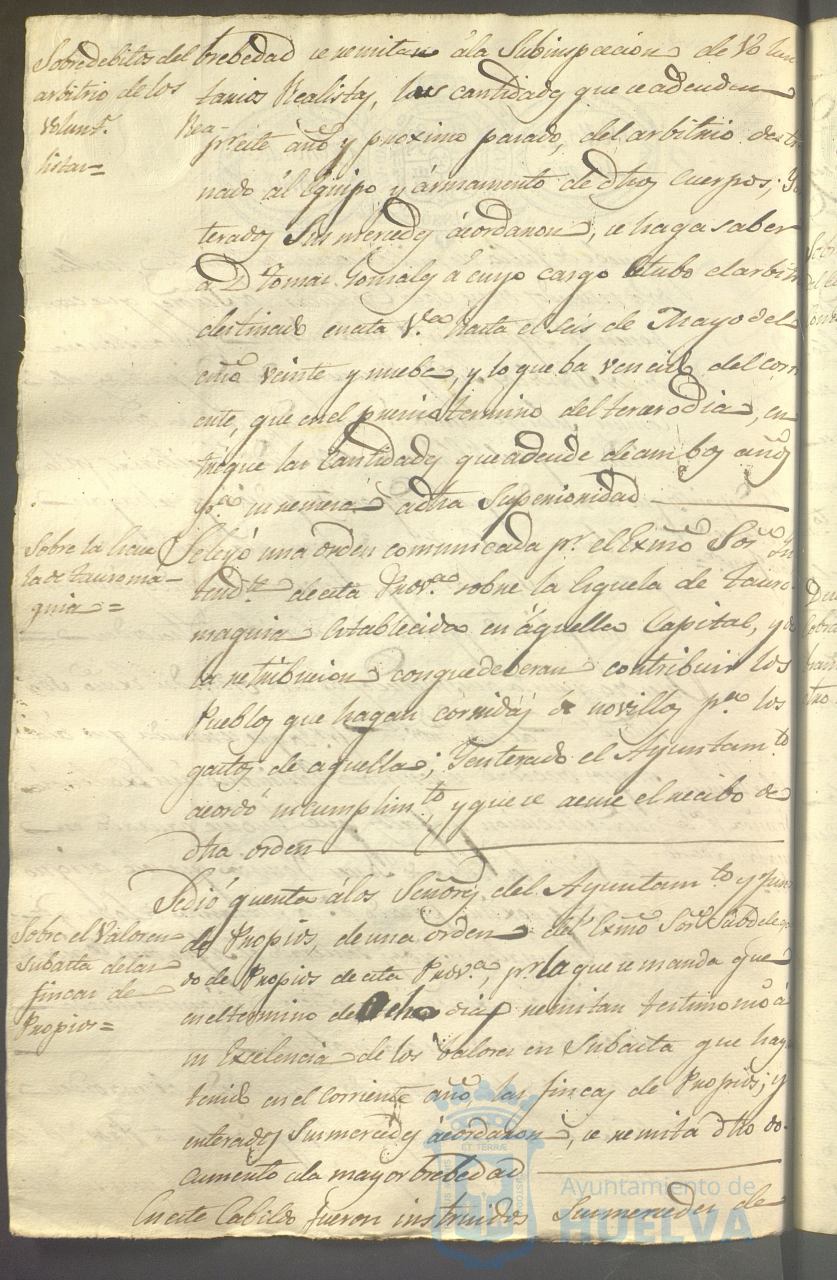 Sobre debitos del
arbitrio de los
Volunt.s Rea-
listas=
brebedad se remitan á la Subinspeccion de Volun
tarios Realistas, las cantidades que se adeuden
pr. este año y proximo pasado, del arbitrio desti
nado ál Equipo y ármamento de dhos Cuerpos; Yn
terados Sus mercedes ácordaron, se haga saber
a D Tomas Gonzalez á cuyo cargo estubo el arbitrio
destinado en esta V.a hasta el seis de Mayo del
año veinte y nuebe, y lo que ha vencido del corri
ente, que en el preciso termino del tercero dia, en
tregue las Cantidades que adeude de ambos años
p.a su remesa á dha Superioridad
Sobre la Escue
la de tauroma-
quia =
Se leyó una orden comunicada pr. el Exmo Sor. Yn
tend.te de esta Prov.a sobre la Escuela de tauro-
maquia Establecida en áquella Capital, y de
la retribucion con que deberan contribuir los
Pueblos que hagan corridas de novillos p.a los
gastos de aquella; Yenterado el Ayuntam.to
acordó su cumplim.to y que se acuse el recibo de
dha orden
Sobre el Valor en
Subasta de las
fincas de
Propios=
Se dió quenta á los Señores del Ayuntam.to y Junta
de Propios, de una orden del Exmo Sor. Subdelega
do de Propios de esta Prov.a, pr. la que se manda que
en el termino de Ocho dias remitan testimonio á
su Excelencia de los Valores en Subasta que hayn
tenido en el Corriente año, las fincas de Propios; y
enterados Sus mercedes ácordaron, se remita dho do-
cumento a la mayor brebedad
En este Cabildo fueron instruidos Sus mercedes de
Ayuntamiento de
HUELVA